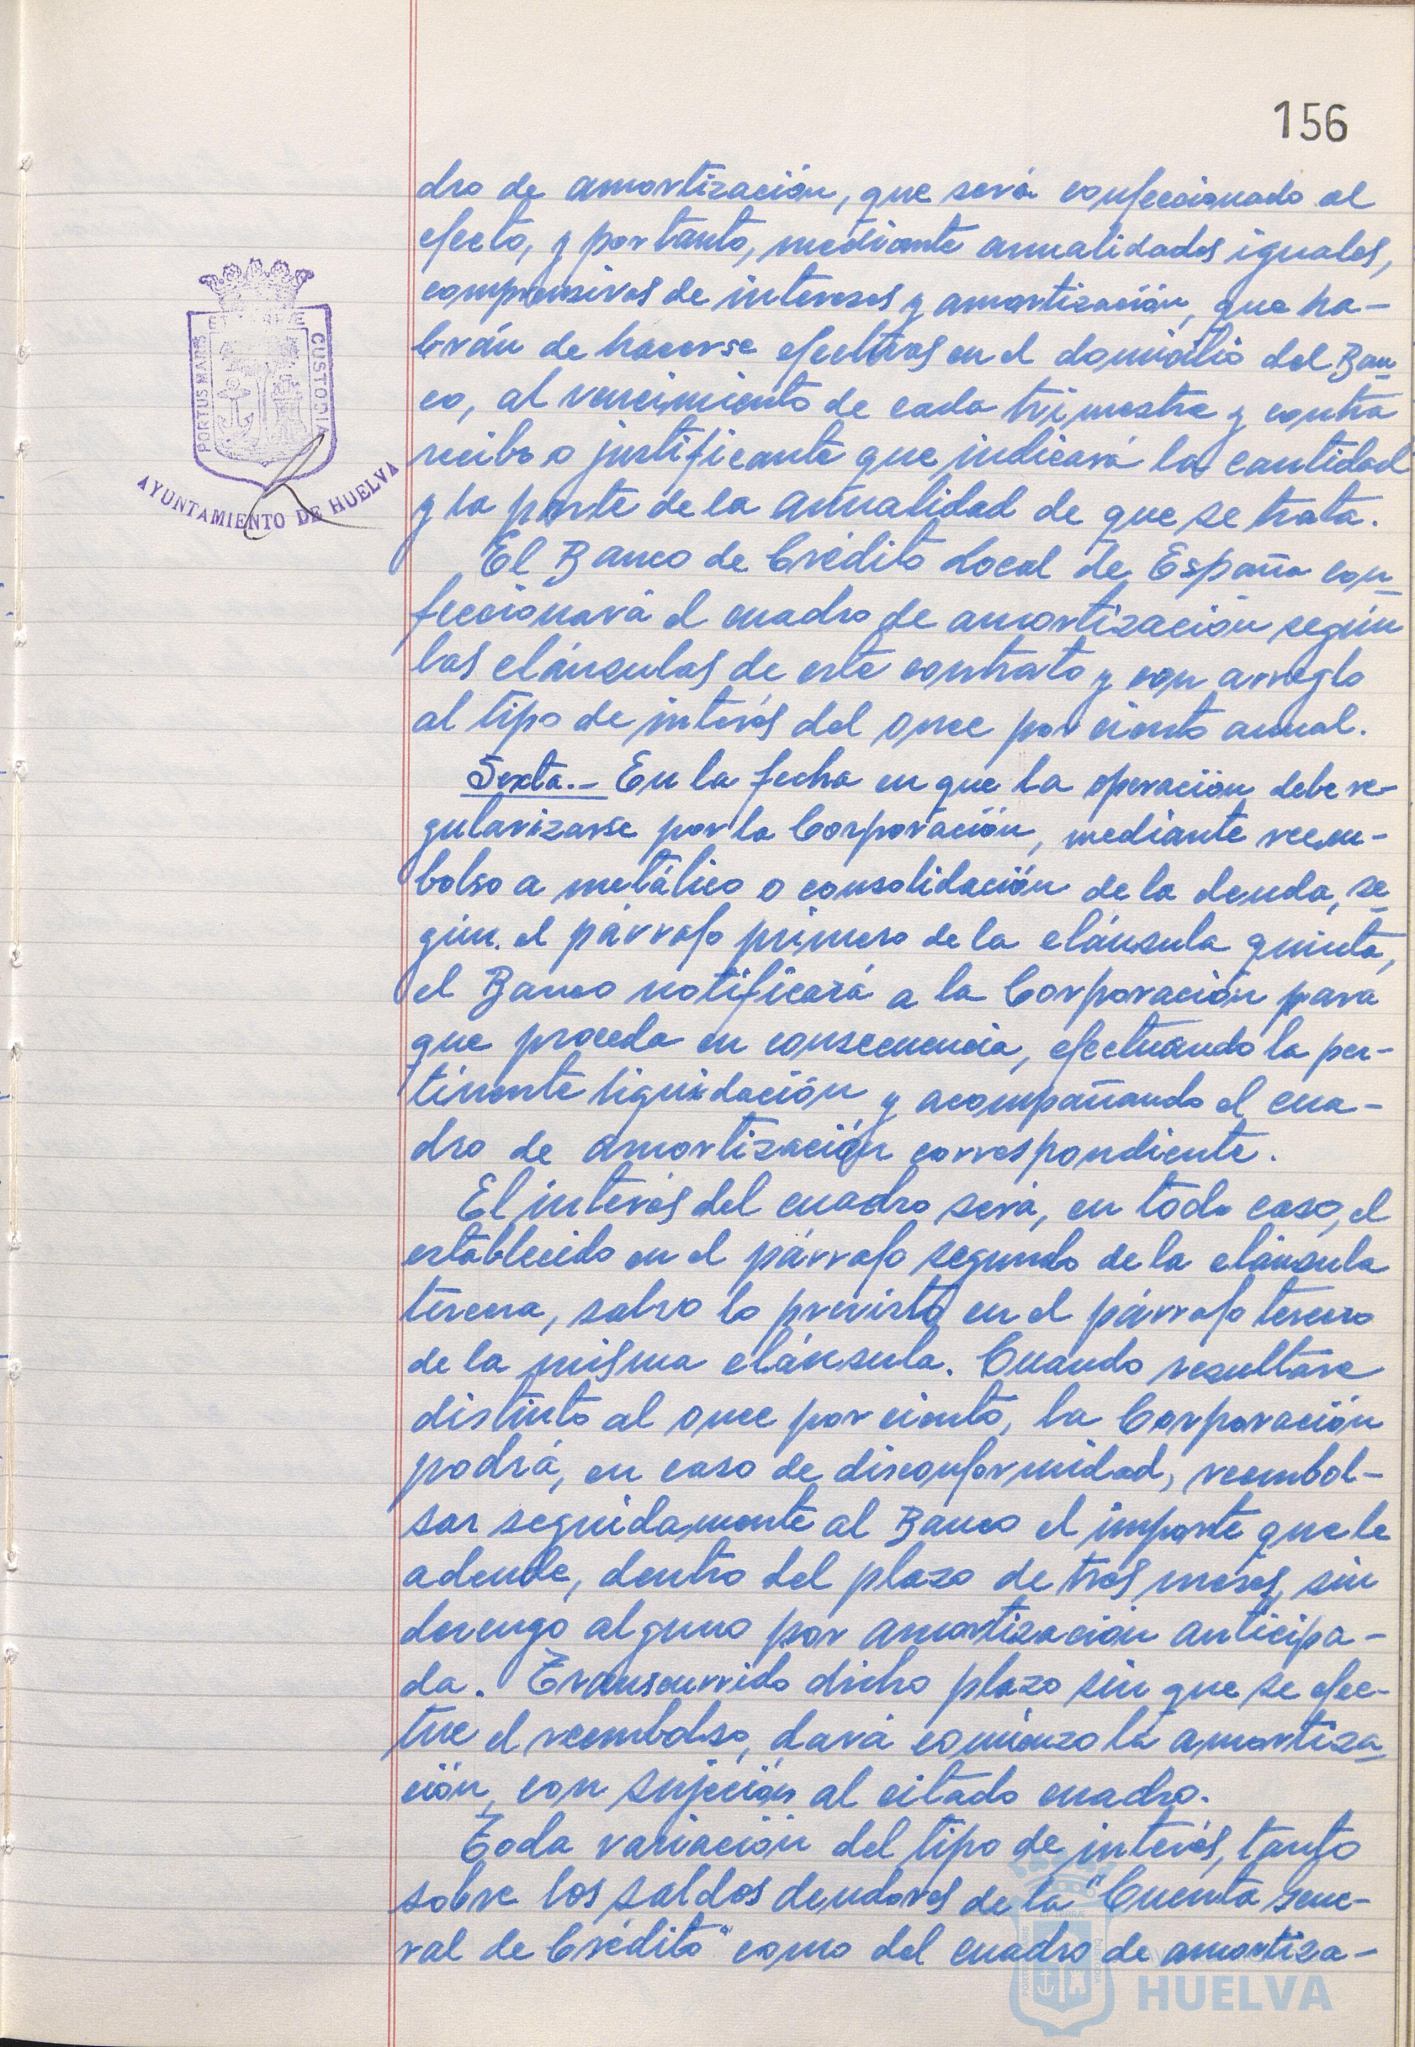 156
dro de amortización, que será confeccionado al
efecto, y por tanto, mediante anualidades iguales,
comprensivas de intereses y amortización, que ha-
brán de hacerse efectivas en el domicilio del Ban-
co, al vencimiento de cada trimestre y contra
recibo o justificante que indicará la cantidad
y la parte de la anualidad de que se trata.
El Banco de Crédito Local de España con-
feccionará el cuadro de amortización según
las cláusulas de este contrato y con arreglo
al tipo de interés del once por ciento anual.
Sexta.- En la fecha en que la operación debe re-
gularizarse por la Corporación, mediante reem-
bolso a metálico o consolidación de la deuda, se-
gún el párrafo primero de la cláusula quinta,
el Banco notificará a la Corporación para
que proceda en consecuencia, efectuando la per-
tinente liquidación y acompañando el cua-
dro de amortización correspondiente.
El interés del cuadro será, en todo caso, el
establecido en el párrafo segundo de la cláusula
tercera, salvo lo previsto en el párrafo tercero
de la misma cláusula. Cuando resultare
distinto al once por ciento, la Corporación
podrá, en caso de disconformidad, reembol-
sar seguidamente al Banco el importe que le
adeude, dentro del plazo de tres meses, sin
devengo alguno por amortización anticipa-
da. Transcurrido dicho plazo sin que se efec-
túe el reembolso, dará comienzo la amortiza-
ción, con sujeción al citado cuadro.
Toda variación del tipo de interés, tanto
sobre los saldos deudores de la "Cuenta gene-
ral de Crédito" como del cuadro de amortiza-
PORTUS MARIS
CUSTODIA
AYUNTAMIENTO DE HUELVA
HUELVA